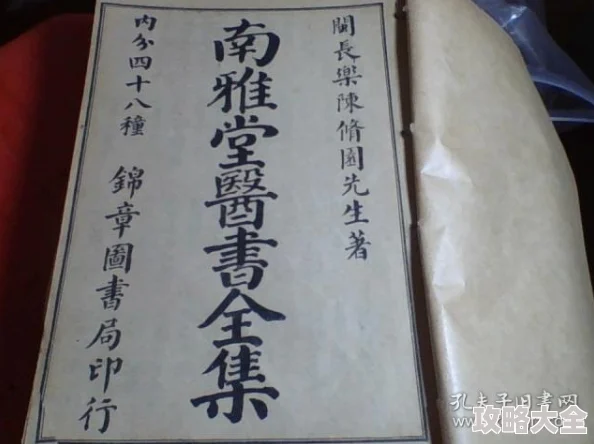 閩長樂陳脩園先生著
南雅堂醫書全集
内分四十八種
錦章圖書局印行
孔夫子旧書网
攻略大全